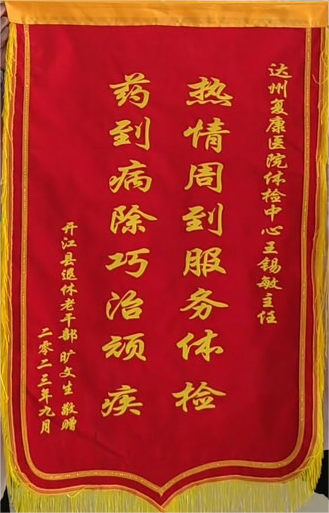 达州复康医院体检中心王锡敏主任
热情周到服务体检
药到病除巧治顽疾
开江县退休老干部 旷文生 敬赠
二零二三年九月